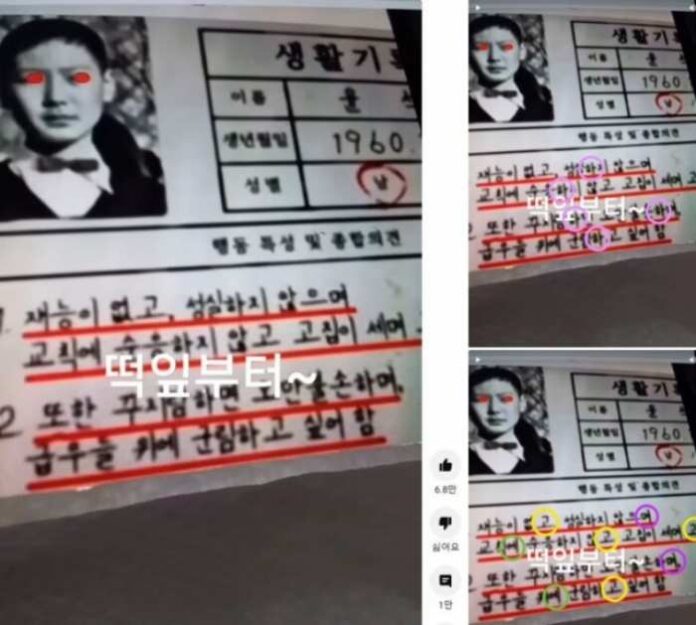 생활기록
이름
윤 석
생년월일
1960.
성별
남
행동 특성 및 종합의견
1. 재능이 없고, 성실하지 않으며
교칙에 수응하지 않고 고집이 세며
떡잎부터~
2 또한 꾸지람하면 도안불손하며,
급우들 위에 군림하고 싶어 함
생활기록
이름
윤 석
생년월일
1960
성별
남
행동 특성 및 종합의견
재능이 없고, 성실하지 않으며
교칙에 수응하지 않고 고집이 세며 고
떡잎부터~
2 또한 하며,
급우들 위에 군림하고 싶어 함
6.8만
싫어요
1만
생활기록
이름
윤 석
생년월일
1960
성별
남
행동 특성 및 종합의견
재능이 없고 성실하지 않으며
교칙에 수응하지 않고 고집이 세며 고
떡잎부터~
2 또한 손하며,
급우들 위에 군림하고 싶어 함